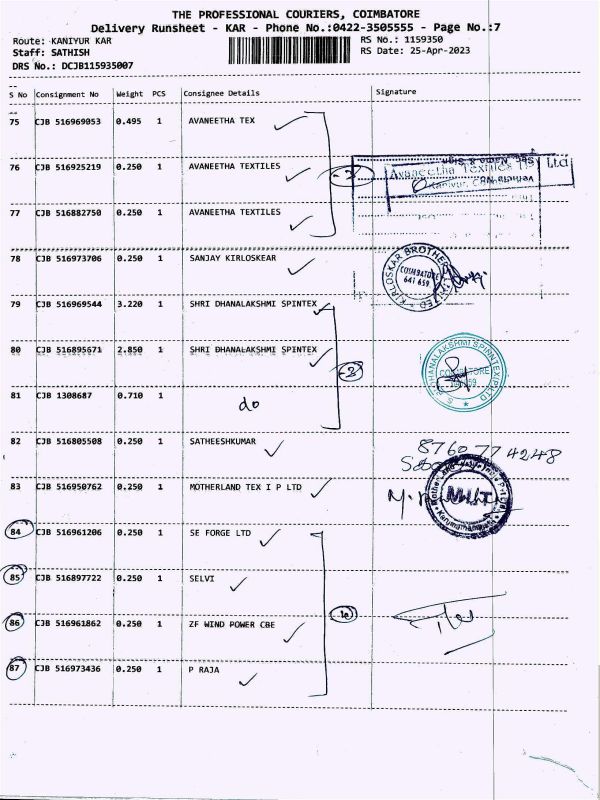 THE PROFESSIONAL COURIERS, COIMBATORE
Delivery Runsheet - KAR - Phone No.:0422-3505555 - Page No.:7
Route: KANIYUR KAR RS No.: 1159350
Staff: SATHISH RS Date: 25-Apr-2023
DRS No.: DCJB115935007
S No Consignment No Weight PCS Consignee Details Signature
75 CJB 516969053 0.495 1 AVANEETHA TEX
76 CJB 516925219 0.250 1 AVANEETHA TEXTILES
Avaneetha Textiles Ltd
77 CJB 516882750 0.250 1 AVANEETHA TEXTILES
78 CJB 516973706 0.250 1 SANJAY KIRLOSKEAR
KIRLOSKAR BROTHERS LIMITED
COIMBATORE
641 659
79 CJB 516969544 3.220 1 SHRI DHANALAKSHMI SPINTEX
80 CJB 516895671 2.850 1 SHRI DHANALAKSHMI SPINTEX
DHANALAKSHMI SPINNTEX (P) LTD
COIMBATORE
81 CJB 1308687 0.710 1 do
82 CJB 516805508 0.250 1 SATHEESHKUMAR 8760774248
83 CJB 516950762 0.250 1 MOTHERLAND TEX I P LTD
84 CJB 516961206 0.250 1 SE FORGE LTD
85 CJB 516897722 0.250 1 SELVI
86 CJB 516961862 0.250 1 ZF WIND POWER CBE
87 CJB 516973436 0.250 1 P RAJA